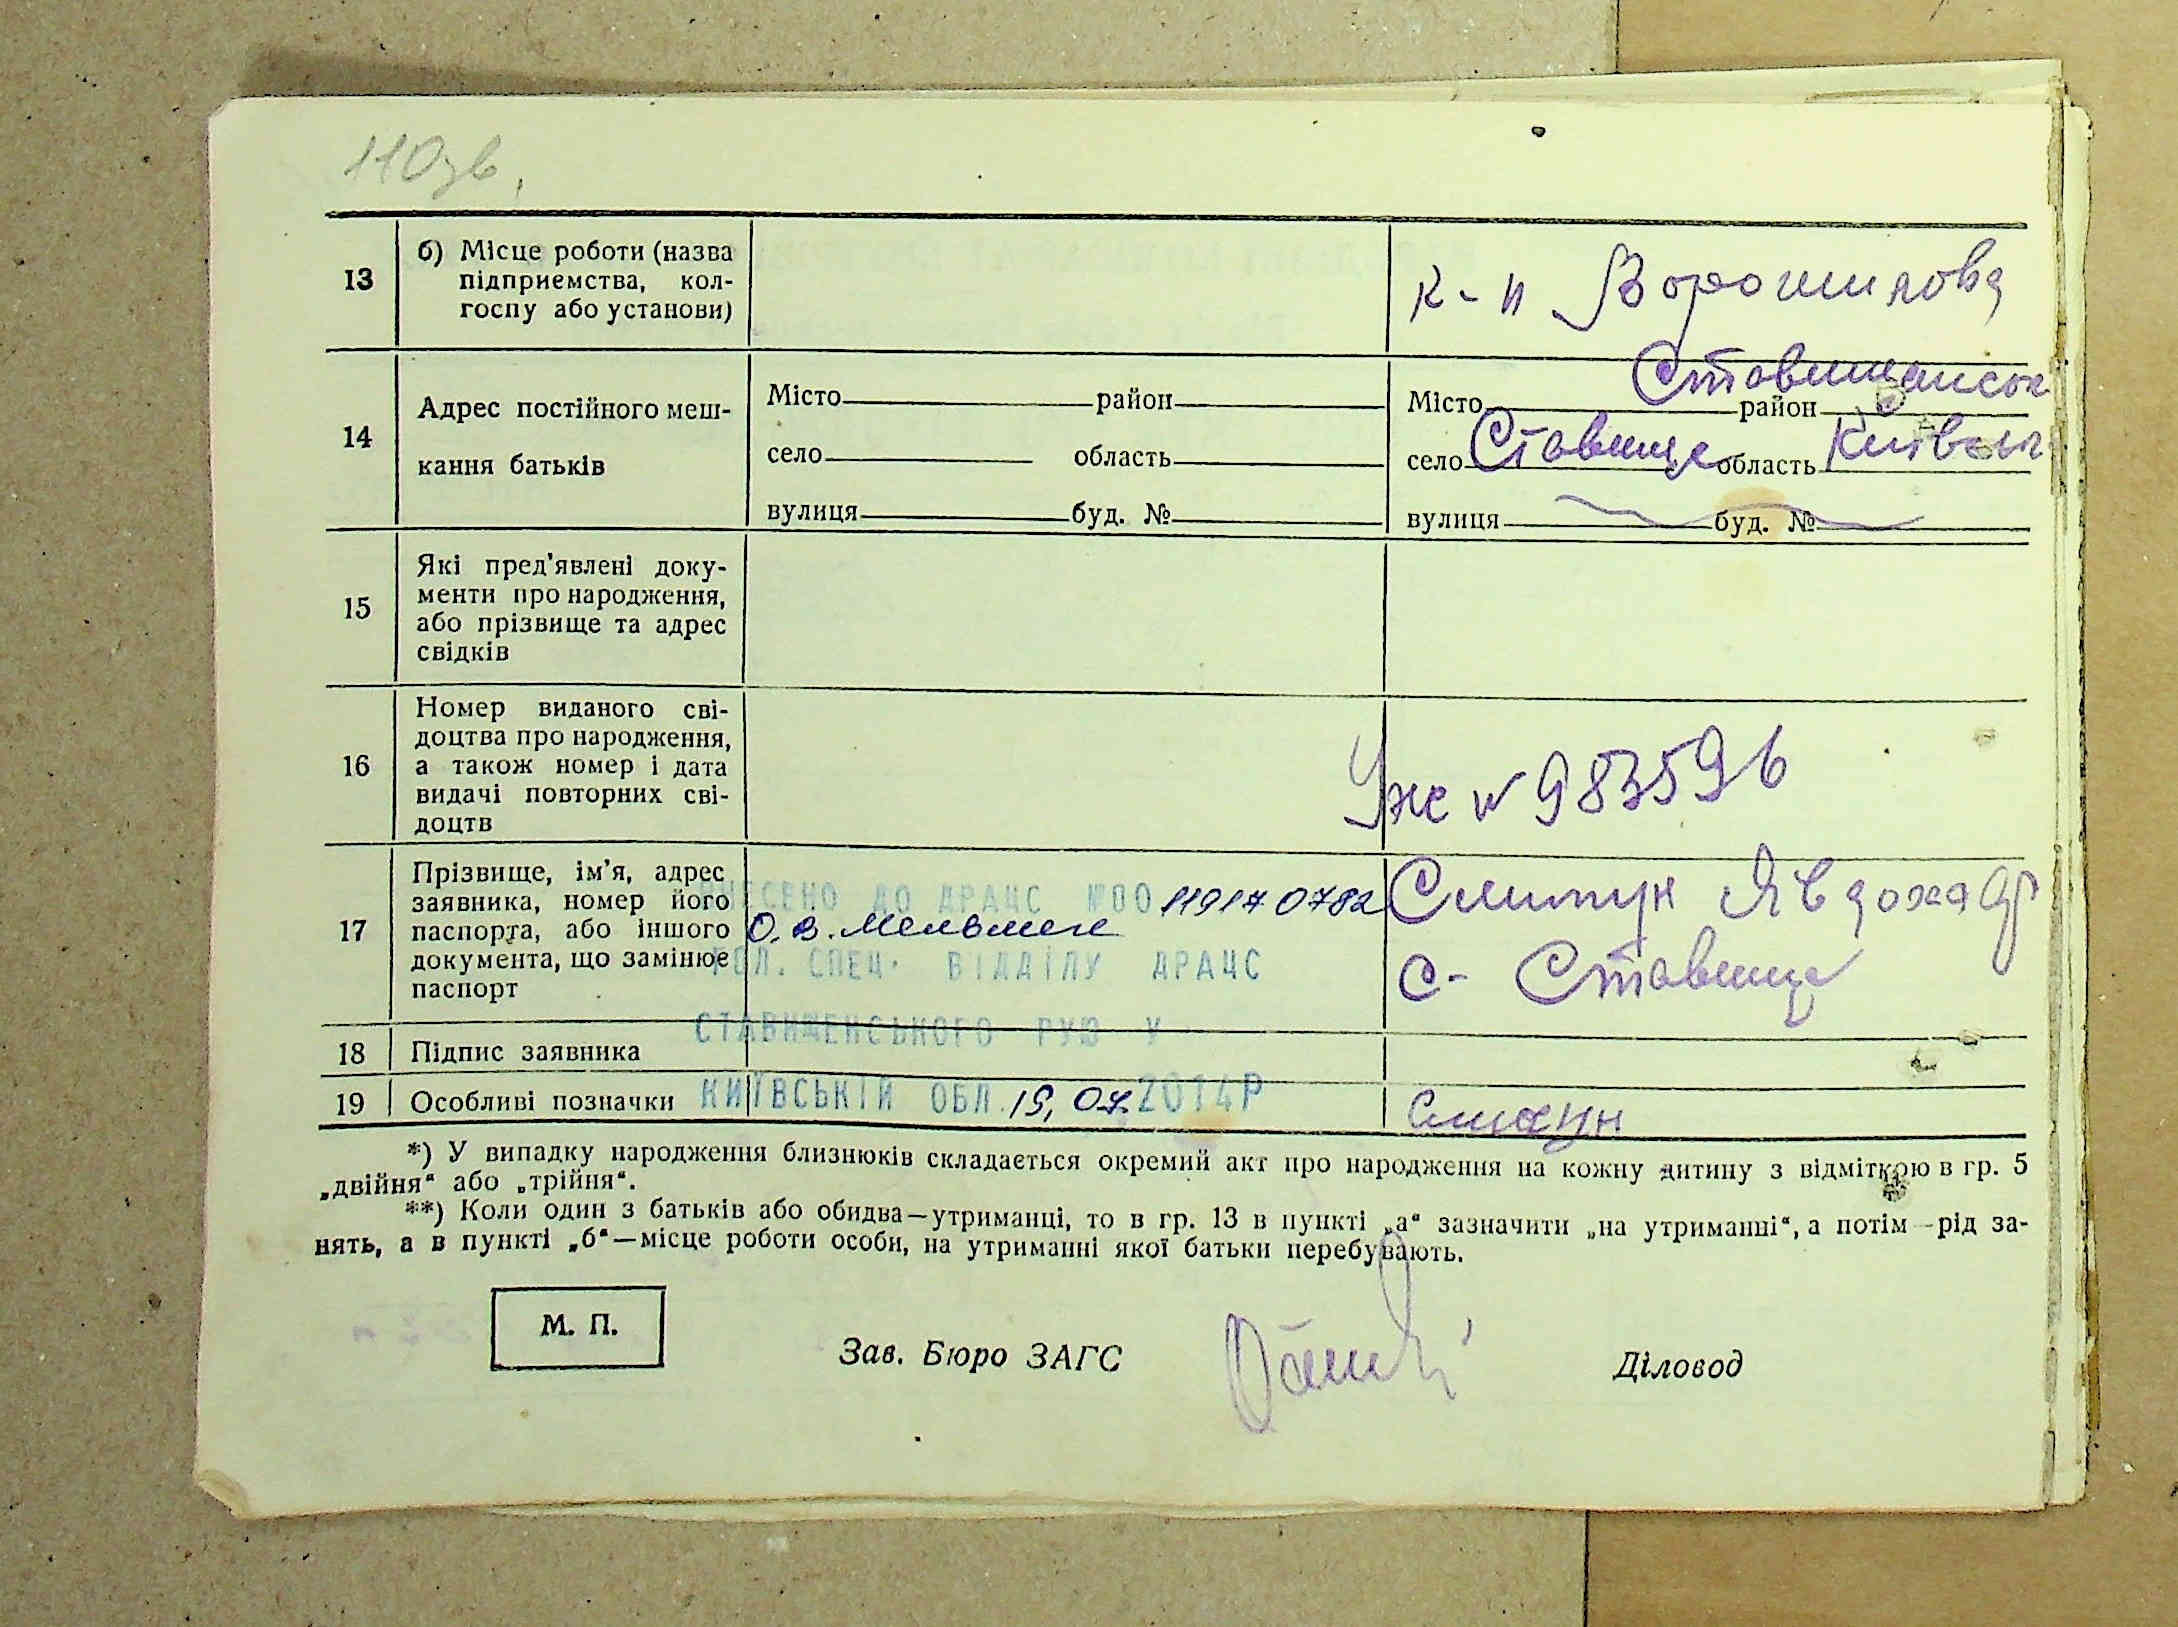 110 зв.
13
б) Місце роботи (назва
підприємства, кол-
госпу або установи)
к-п Ворошилова
14
Адрес постійного меш-
кання батьків
Місто район
село область
вулиця буд. №
Місто район Ставищанськ
село Ставище область Київськ
вулиця буд. №
15
Які пред'явлені доку-
менти про народження,
або прізвище та адрес
свідків
16
Номер виданого сві-
доцтва про народження,
а також номер і дата
видачі повторних сві-
доцтв
№ 983596
17
Прізвище, ім'я, адрес
заявника, номер його
паспорта, або іншого
документа, що замінює
паспорт
ВНЕСЕНО ДО ДРАЦС №00119170782
О.В.
ГОЛ. СПЕЦ. ВІДДІЛУ ДРАЦС
СТАВИЩЕНСЬКОГО РУЮ У
КИЇВСЬКІЙ ОБЛ. 15.07.2014Р
Явдоха
с- Ставище
18
Підпис заявника
19
Особливі позначки
*) У випадку народження близнюків складається окремий акт про народження на кожну дитину з відміткою в гр. 5
„двійня“ або „трійня“.
**) Коли один з батьків або обидва—утриманці, то в гр. 13 в пункті „а“ зазначити „на утриманні“, а потім—рід за-
нять, а в пункті „б“—місце роботи особи, на утриманні якої батьки перебувають.
М. П.
Зав. Бюро ЗАГС
Діловод